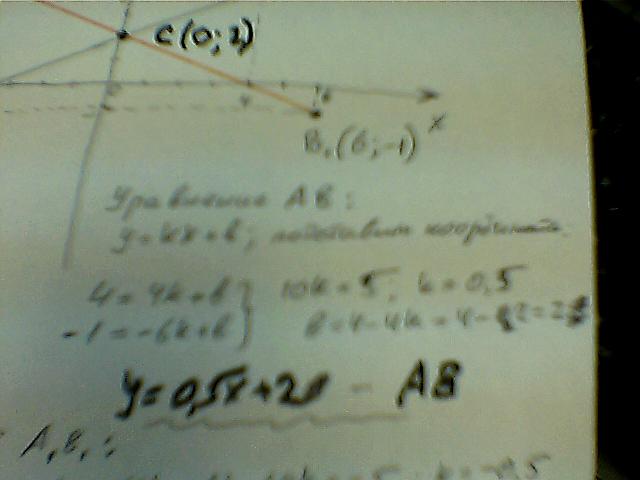 C(0; 2)
4 6
X
B₁(6; -1)
Уравнение AB:
y=kx+b; подставим координаты.
4=4k+b } 10k=5; k=0,5
-1=-6k+b } b=4-4k=4-2=2
y=0,5x+2 - AB
A₁B₁: